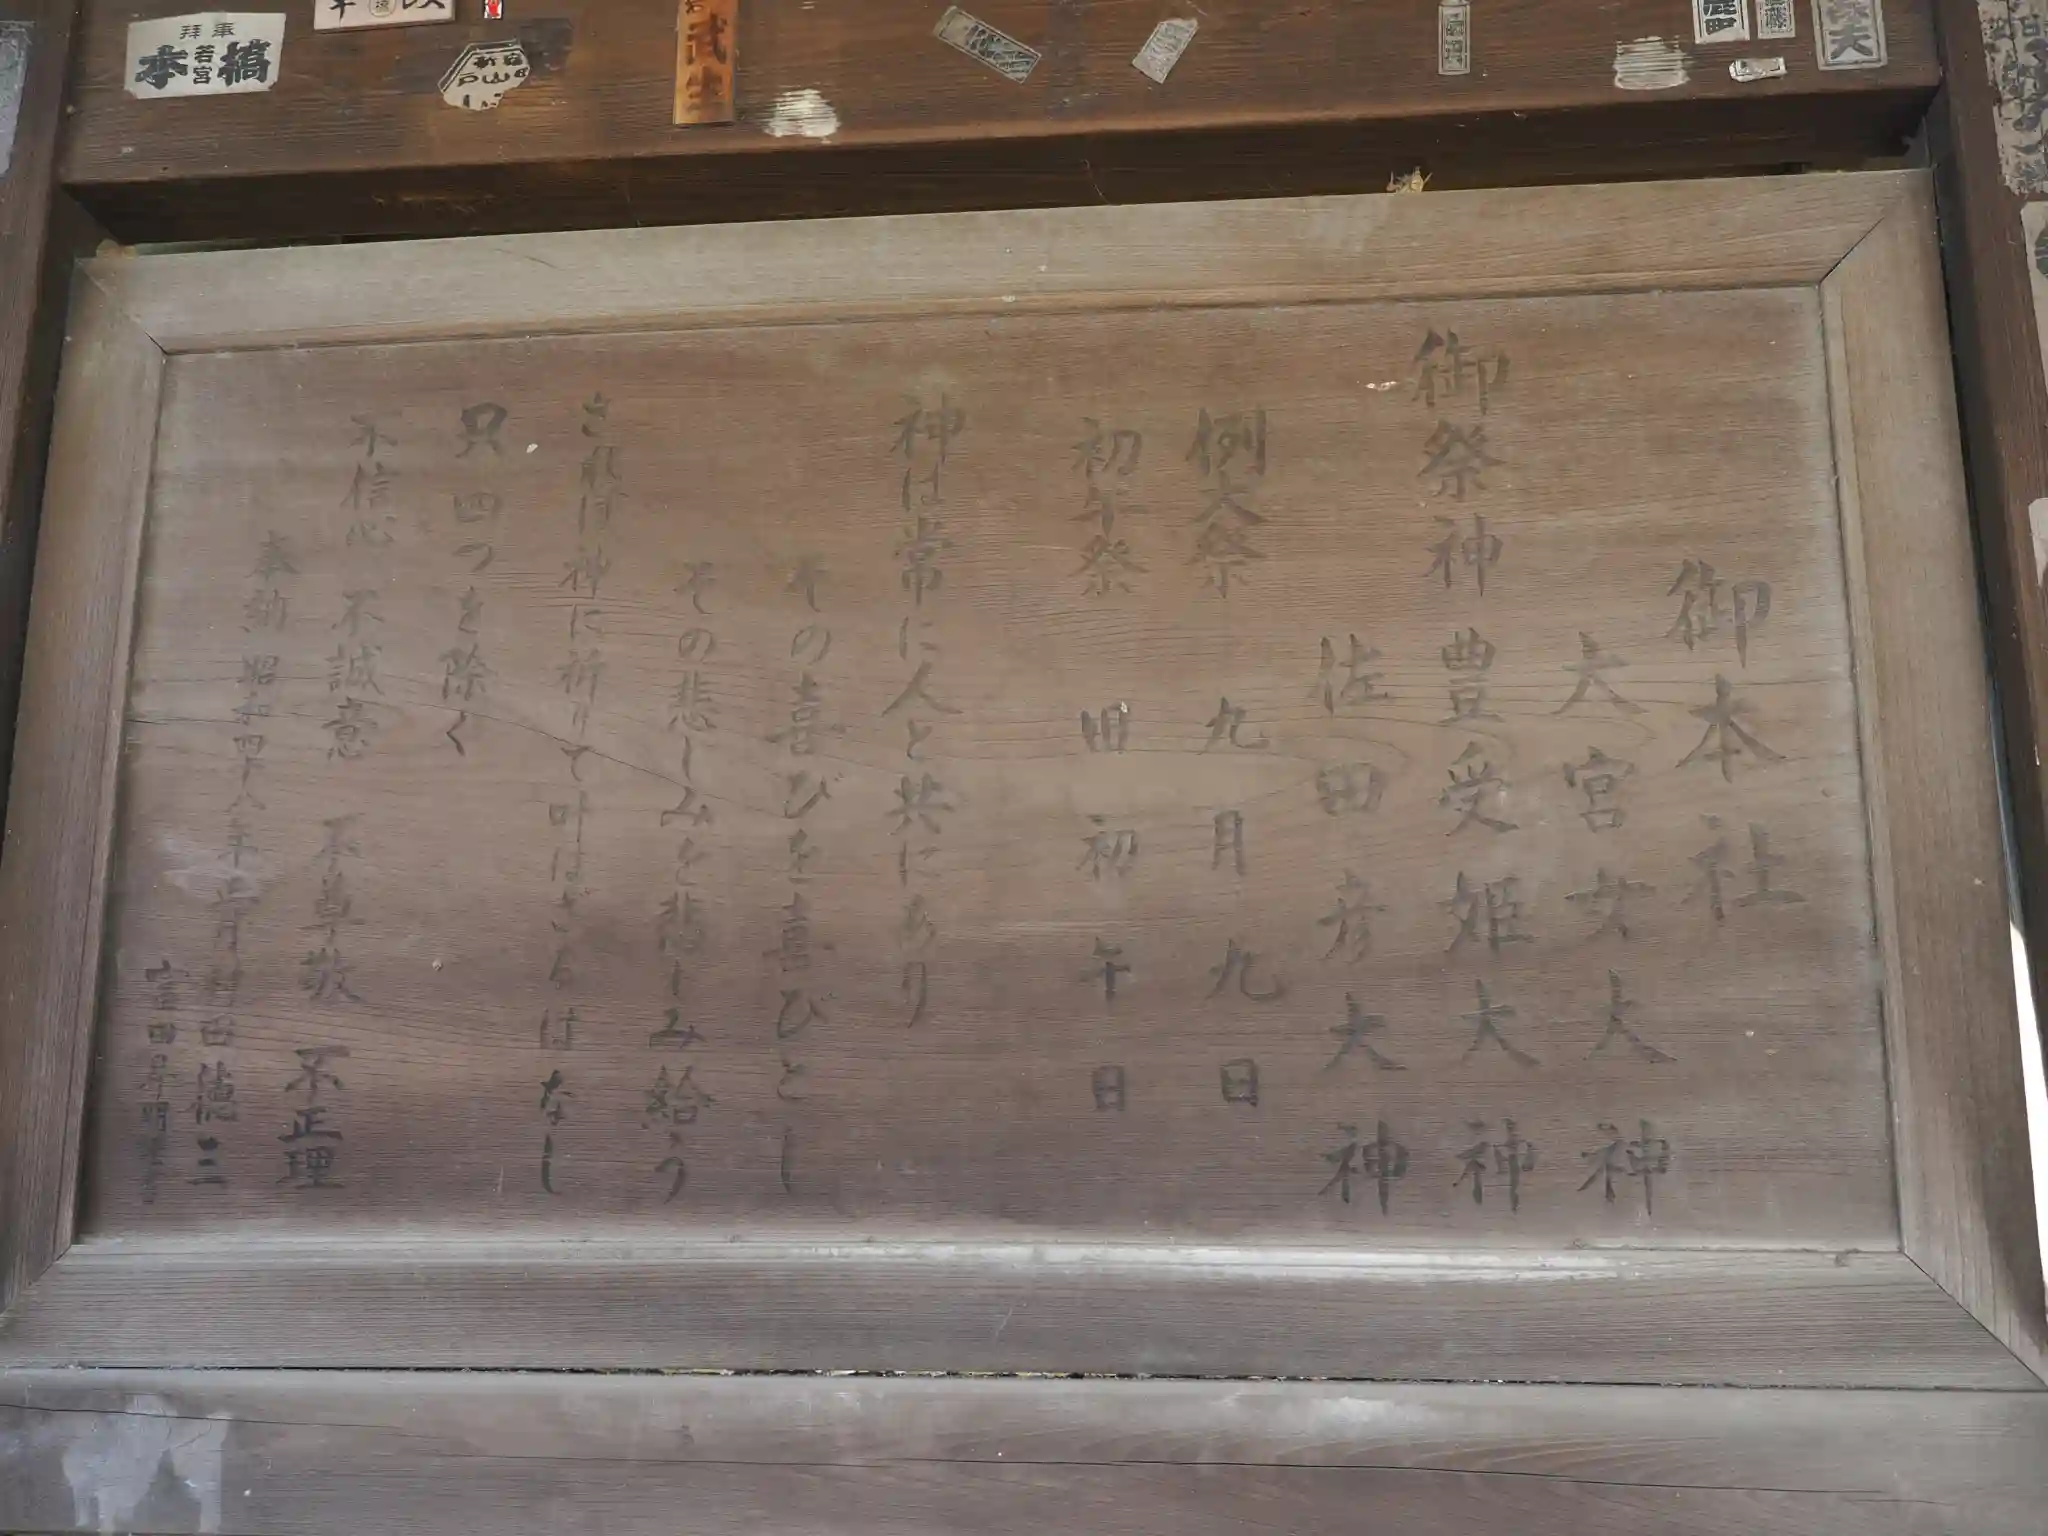 御本社
大宮女大神
御祭神 豊受姫大神
佐田彦大神
例大祭 九月九日
初午祭 旧初午日
神は常に人と共にあり
その喜びを喜びとし
その悲しみを悲しみ給う
され、は神に祈りて叶はざるはなし
只四つを除く
不信心 不誠意 不尊敬 不正理
奉納 昭和四十八年 村田徳三
富田
奉拝
若宮
橋本
武生